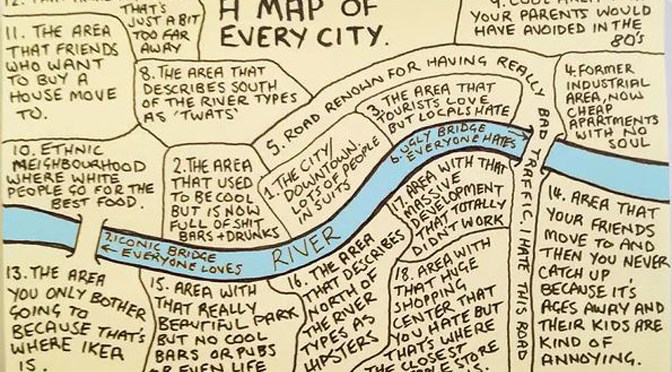 THAT'S
JUST A BIT
TOO FAR
AWAY
A MAP OF
EVERY CITY.
YOUR PARENTS WOULD
HAVE AVOIDED IN THE
80'S
11. THE AREA
THAT FRIENDS
WHO WANT
TO BUY A
HOUSE MOVE
TO.
8. THE AREA THAT
DESCRIBES SOUTH
OF THE RIVER TYPES
AS 'TWATS'
5. ROAD RENOWN FOR HAVING REALLY BAD TRAFFIC. I HATE THIS ROAD
4. FORMER
INDUSTRIAL
AREA, NOW
CHEAP
APARTMENTS
WITH NO
SOUL
3. THE AREA THAT
TOURISTS LOVE
BUT LOCALS HATE
10. ETHNIC
NEIGHBOURHOOD
WHERE WHITE
PEOPLE GO FOR THE
BEST FOOD.
2. THE AREA
THAT USED
TO BE COOL
BUT IS NOW
FULL OF SHIT
BARS + DRUNKS
1. THE CITY/
DOWNTOWN.
LOTS OF PEOPLE
IN SUITS
6. UGLY BRIDGE →
EVERYONE HATES
7. ICONIC BRIDGE
← EVERYONE LOVES
RIVER
17. AREA WITH THAT
MASSIVE
DEVELOPMENT
THAT TOTALLY
DIDN'T WORK
14. AREA THAT
YOUR FRIENDS
MOVE TO AND
THEN YOU NEVER
CATCH UP
BECAUSE IT'S
AGES AWAY AND
THEIR KIDS ARE
KIND OF
ANNOYING.
13. THE AREA
YOU ONLY BOTHER
GOING TO
BECAUSE THAT'S
WHERE IKEA
IS.
15. AREA WITH
THAT REALLY
BEAUTIFUL PARK
BUT NO COOL
BARS OR PUBS
OR EVEN LIFE
16. THE AREA
THAT DESCRIBES
NORTH OF
THE RIVER
TYPES AS
HIPSTERS
18. AREA WITH
THAT HUGE
SHOPPING
CENTER THAT
YOU HATE BUT
THAT'S WHERE
THE CLOSEST
STORE